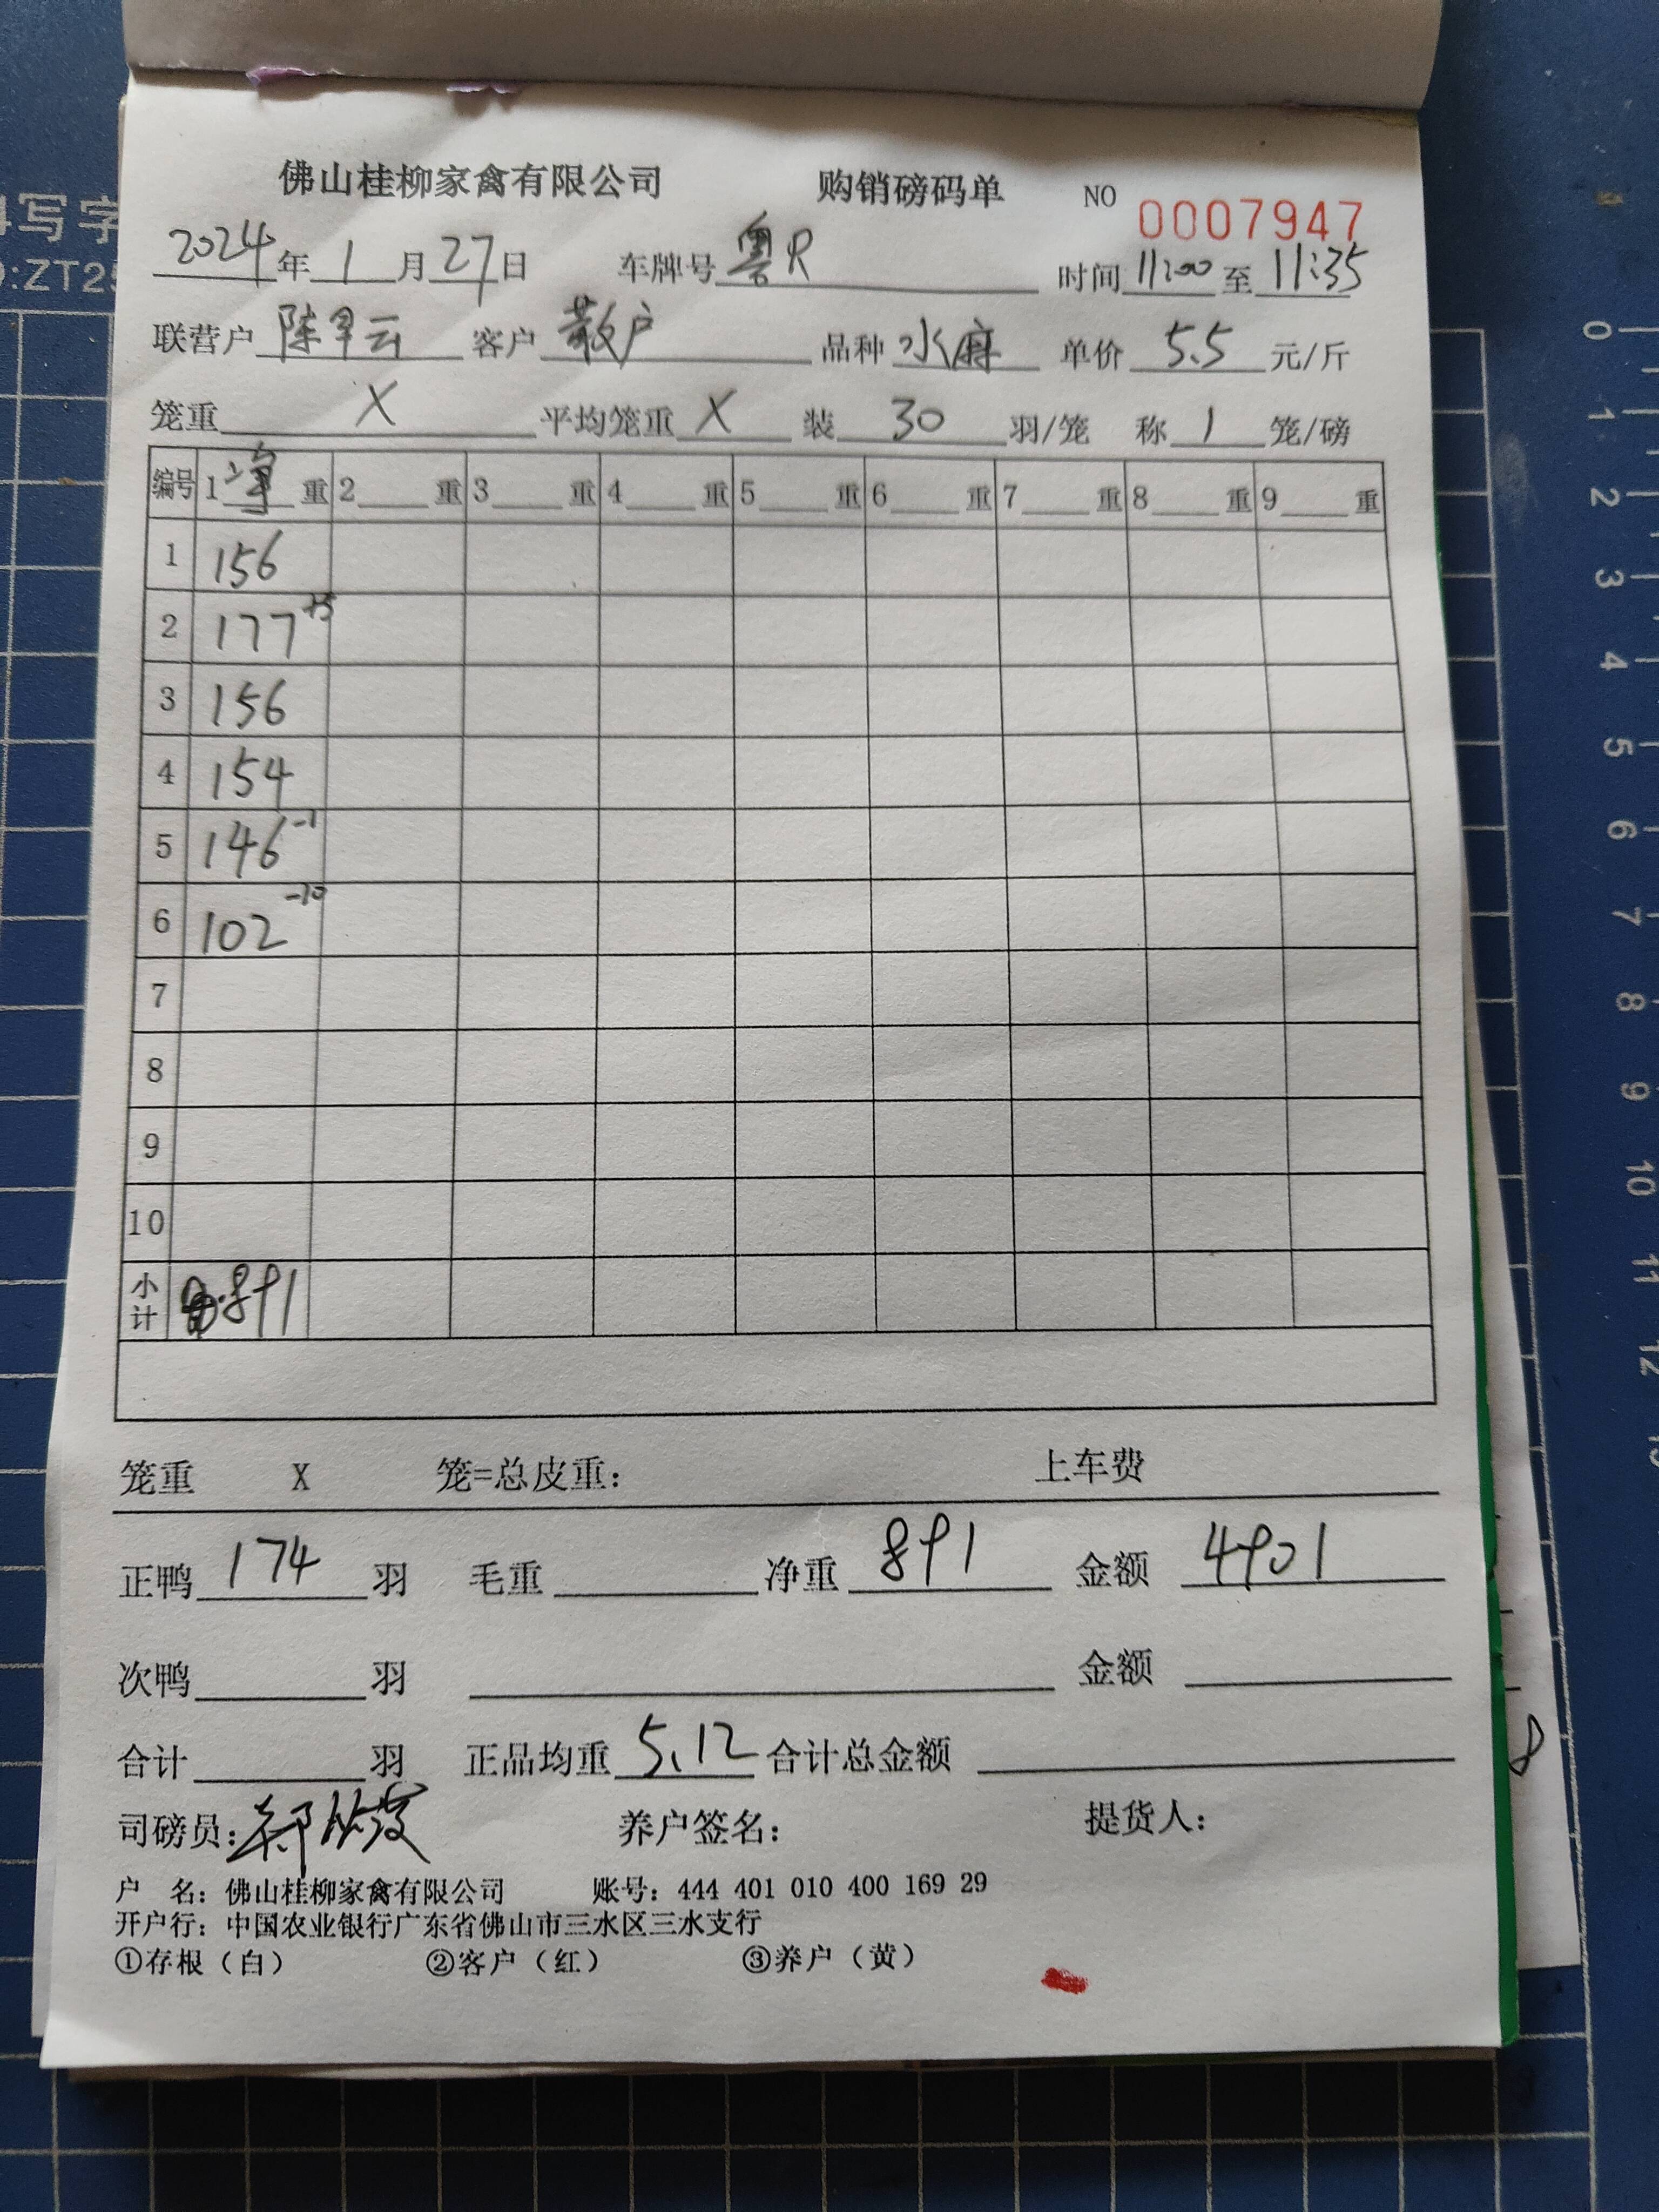 佛山桂柳家禽有限公司 购销磅码单 NO 0007947
2024年1月27日 车牌号粤R 时间11:00至11:35
联营户陈早云 客户散户 品种水麻 单价5.5元/斤
笼重X 平均笼重X 装30羽/笼 称1笼/磅
编号 1净重 2重 3重 4重 5重 6重 7重 8重 9重
1 156
2 177+5
3 156
4 154
5 146-1
6 102-10
7
8
9
10
小计 891
笼重 X 笼=总皮重： 上车费
正鸭174羽 毛重 净重891 金额4901
次鸭 羽 金额
合计 羽 正品均重5.12 合计总金额
司磅员： 养户签名： 提货人：
户 名：佛山桂柳家禽有限公司 账号：444 401 010 400 169 29
开户行：中国农业银行广东省佛山市三水区三水支行
①存根（白） ②客户（红） ③养户（黄）
写字
:ZT25
0
1
2
3
4
5
6
7
8
9
10
11
12
13
8